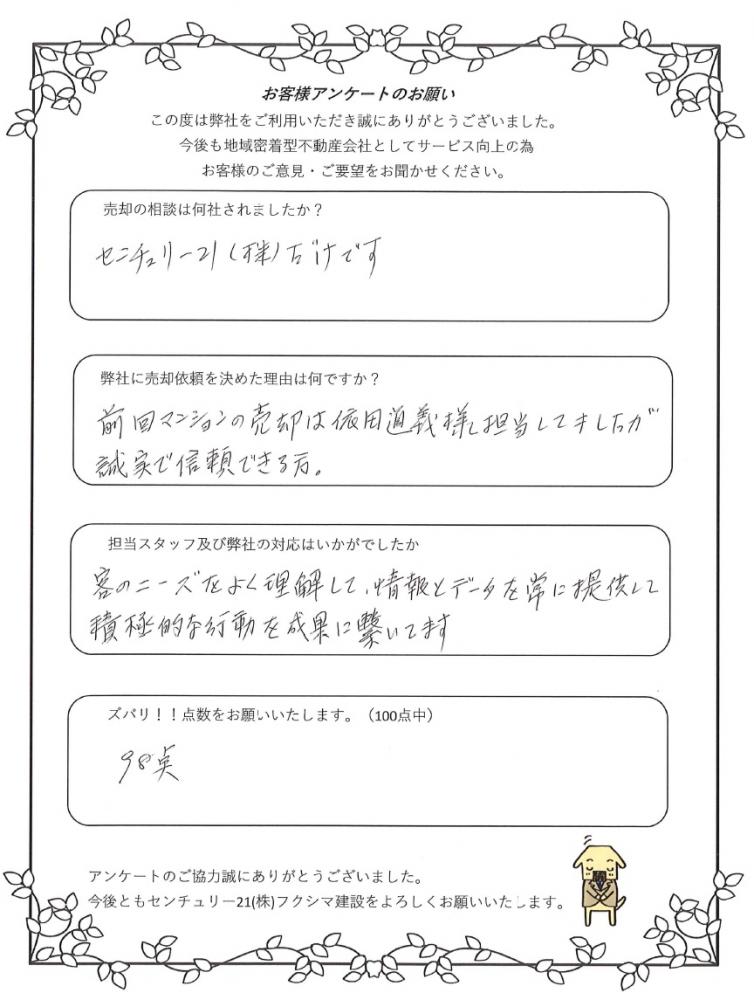 お客様アンケートのお願い
この度は弊社をご利用いただき誠にありがとうございました。
今後も地域密着型不動産会社としてサービス向上の為
お客様のご意見・ご要望をお聞かせください。
売却の相談は何社されましたか？
センチュリー21（株）だけです
弊社に売却依頼を決めた理由は何ですか？
前回マンションの売却は依田道義様し担当してましたが
誠実で信頼できる方。
担当スタッフ及び弊社の対応はいかがでしたか
客のニーズをよく理解して、情報とデータを常に提供して
積極的な行動を成果に繋いてます
ズバリ！！点数をお願いいたします。（100点中）
98点
アンケートのご協力誠にありがとうございました。
今後ともセンチュリー21(株)フクシマ建設をよろしくお願いいたします。